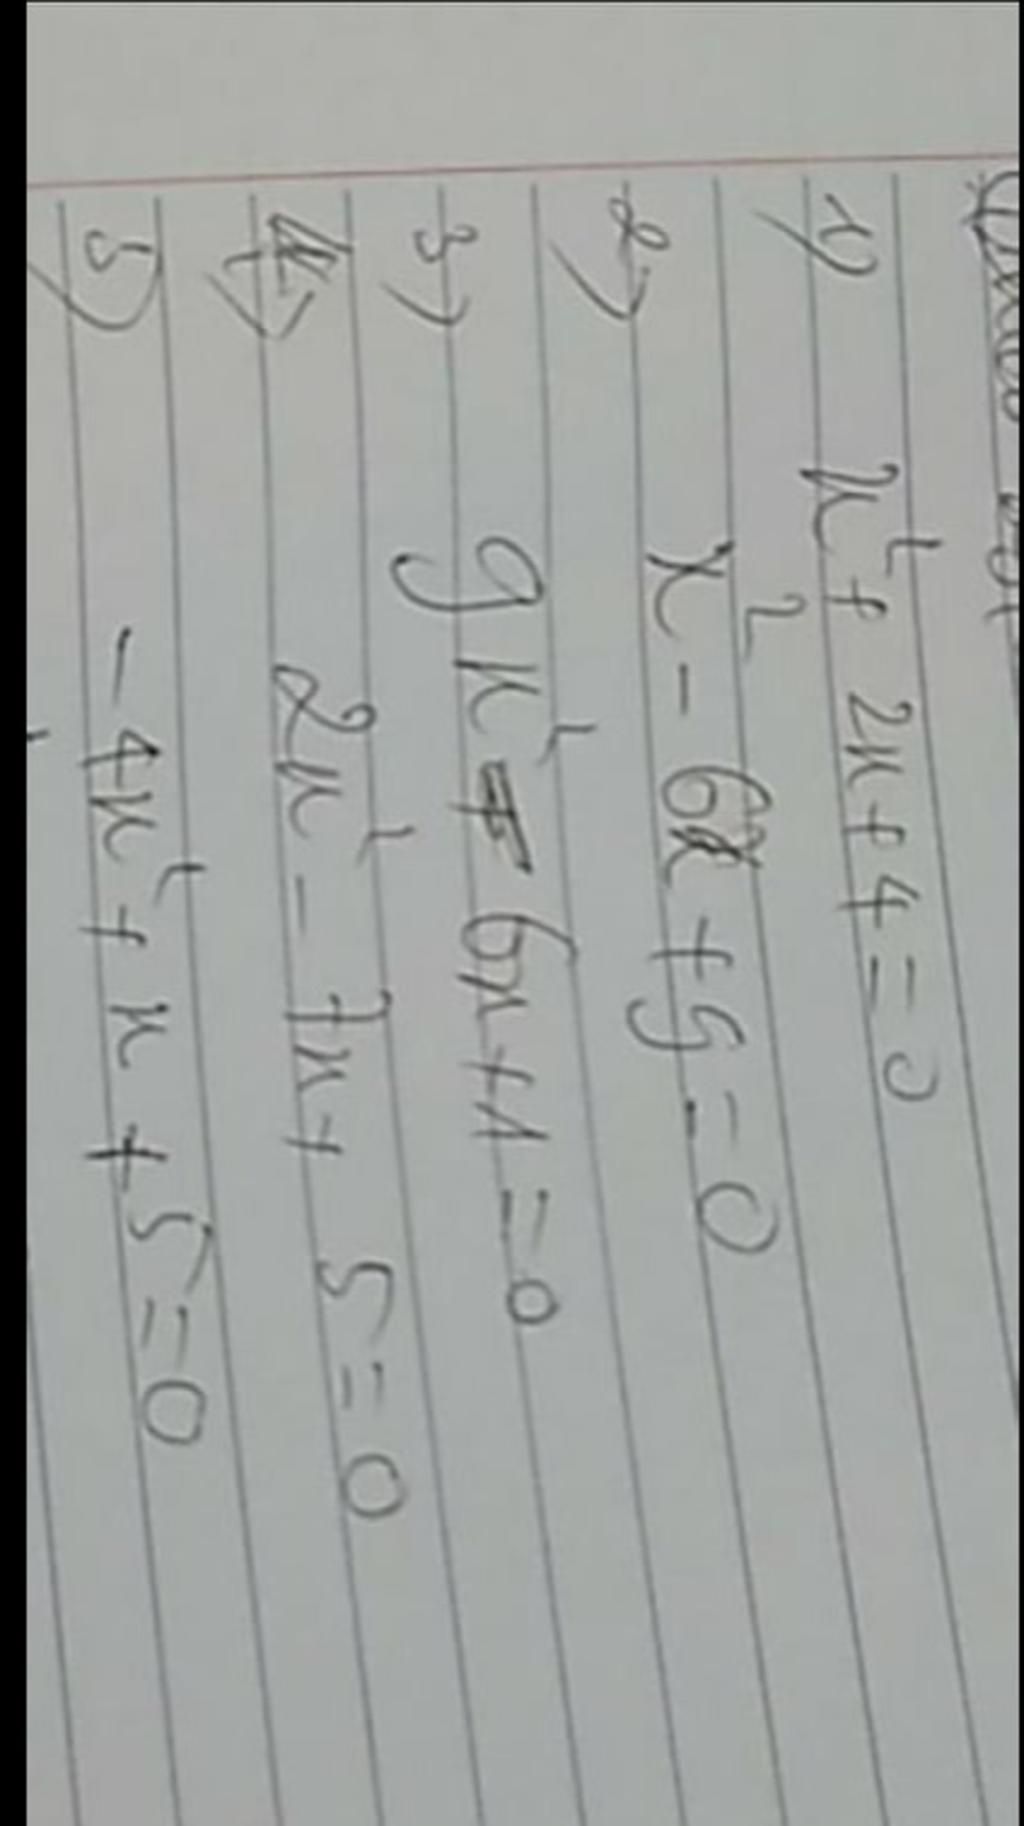 1) x² + 2x + 4 = 0
2) x² - 6x + 9 = 0
3) 9x² - 6x + 1 = 0
4) 2x² - 7x + 5 = 0
5) -4x² + x + 5 = 0